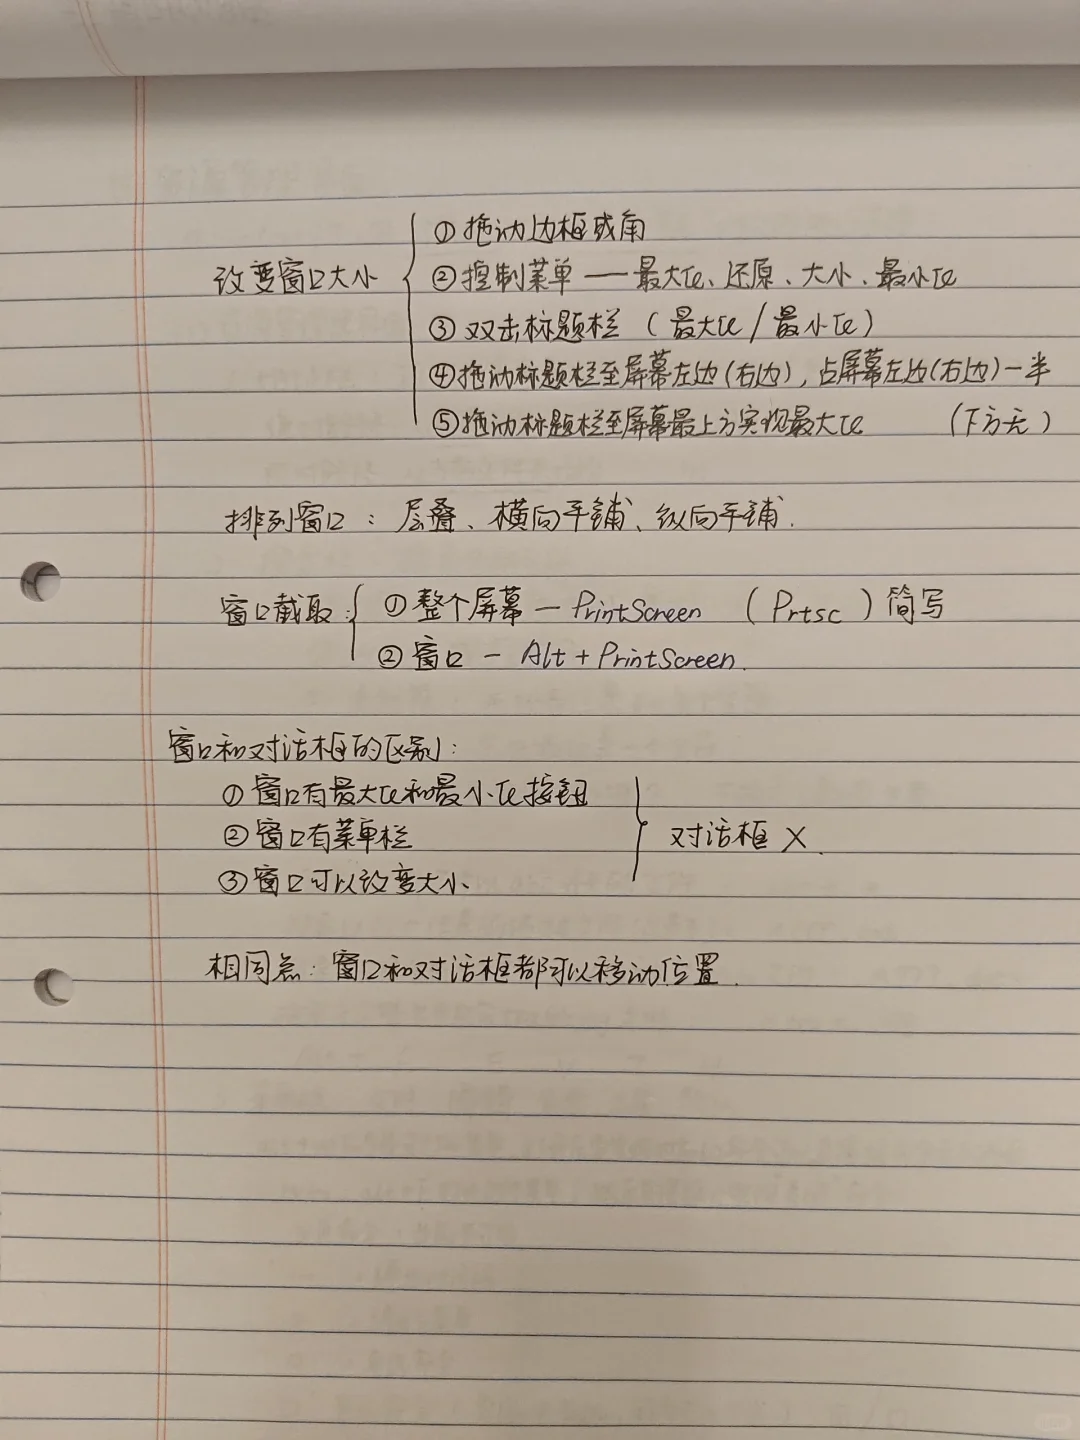 改变窗口大小
①拖动边框或角
②控制菜单——最大化、还原、大小、最小化
③双击标题栏（最大化/最小化）
④拖动标题栏至屏幕左边(右边)，占屏幕左边(右边)一半
⑤拖动标题栏至屏幕最上方实现最大化 （下方无）
排列窗口：层叠、横向平铺、纵向平铺.
窗口截取：①整个屏幕—PrintScreen（Prtsc）简写
②窗口—Alt+PrintScreen.
窗口和对话框的区别：
①窗口有最大化和最小化按钮
②窗口有菜单栏
对话框 ×.
③窗口可以改变大小.
相同点：窗口和对话框都可以移动位置.